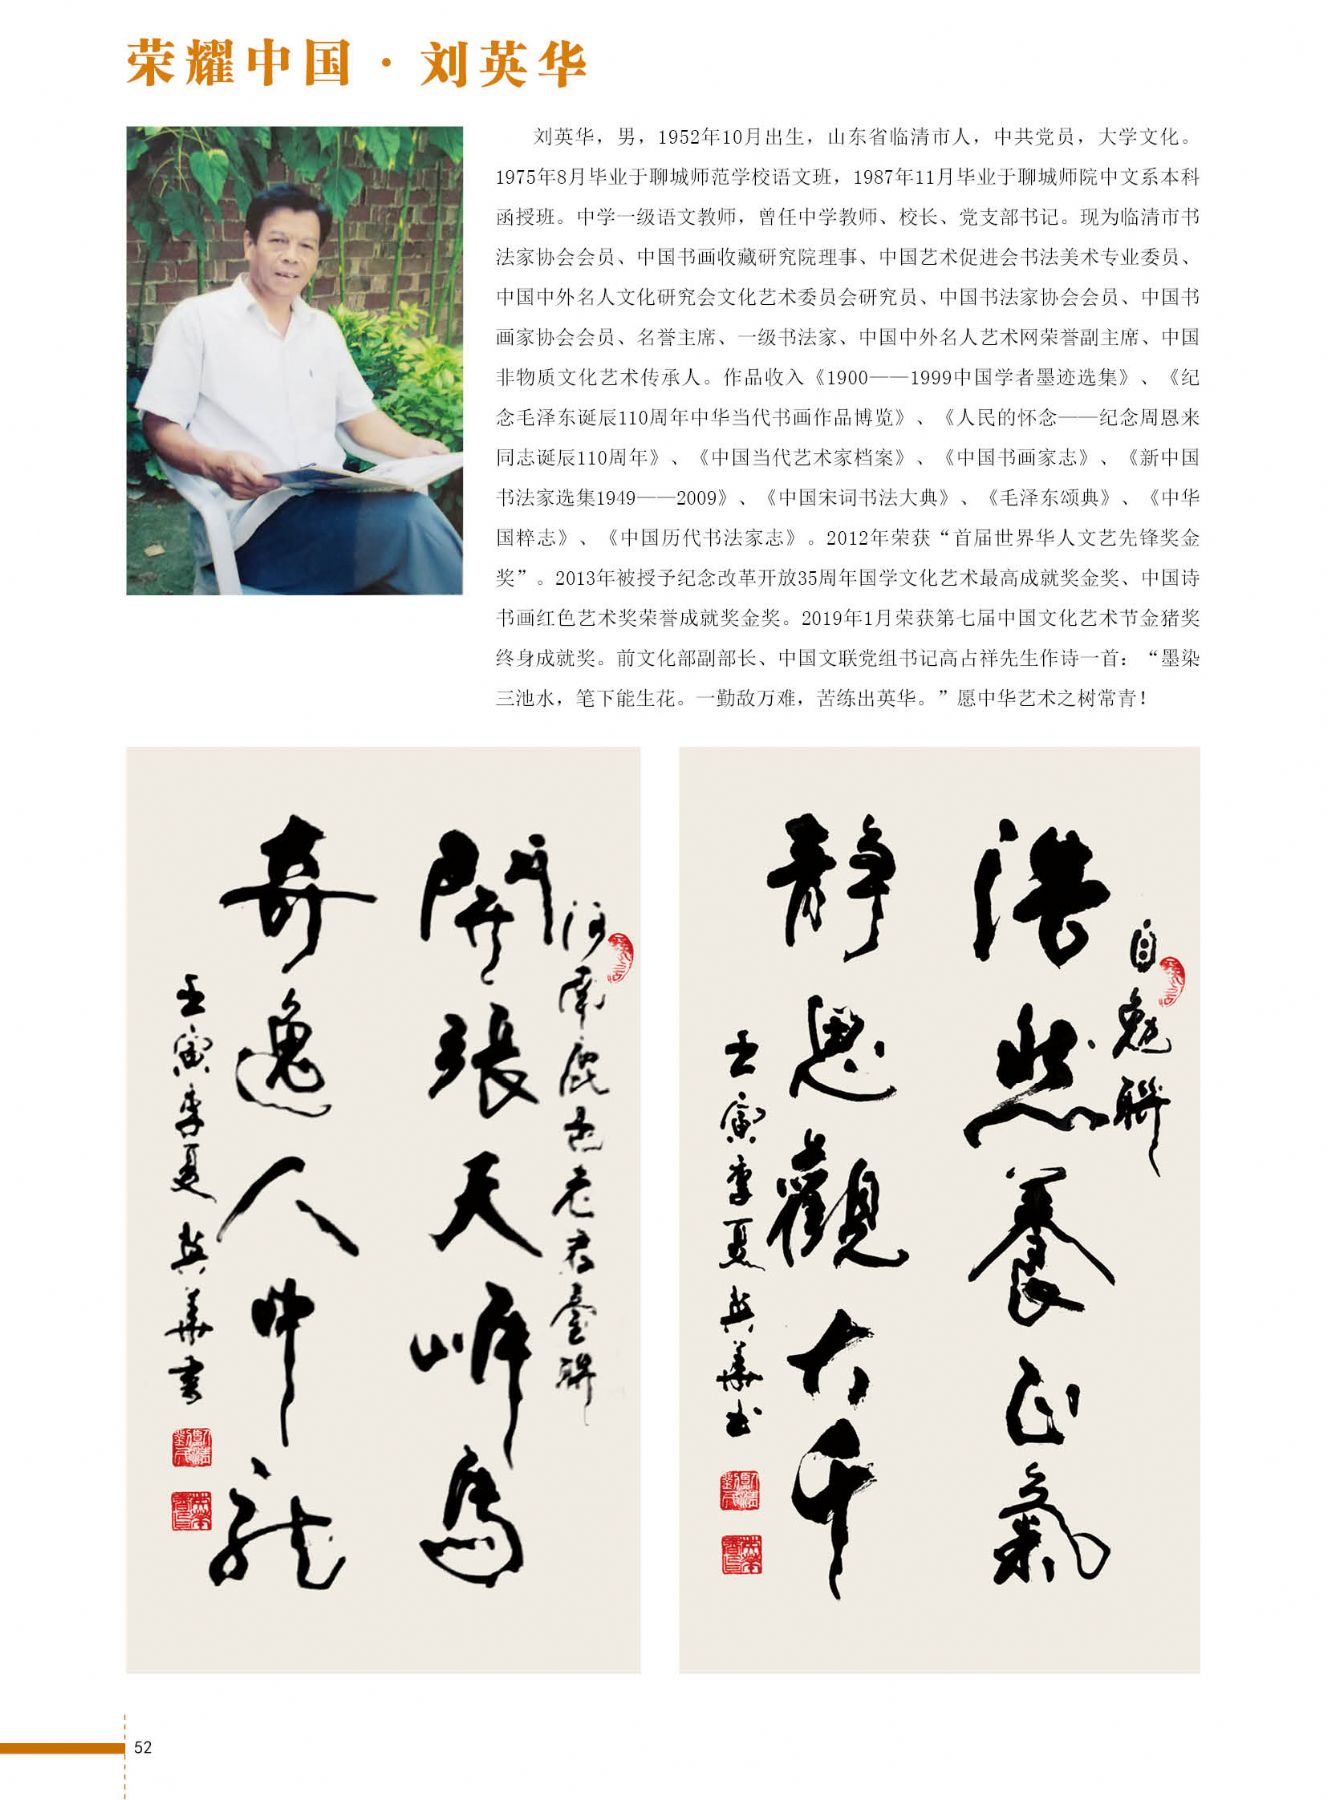 荣耀中国·刘英华
刘英华，男，1952年10月出生，山东省临清市人，中共党员，大学文化。
1975年8月毕业于聊城师范学校语文班，1987年11月毕业于聊城师院中文系本科
函授班。中学一级语文教师，曾任中学教师、校长、党支部书记。现为临清市书
法家协会会员、中国书画收藏研究院理事、中国艺术促进会书法美术专业委员、
中国中外名人文化研究会文化艺术委员会研究员、中国书法家协会会员、中国书
画家协会会员、名誉主席、一级书法家、中国中外名人艺术网荣誉副主席、中国
非物质文化艺术传承人。作品收入《1900——1999中国学者墨迹选集》、《纪
念毛泽东诞辰110周年中华当代书画作品博览》、《人民的怀念——纪念周恩来
同志诞辰110周年》、《中国当代艺术家档案》、《中国书画家志》、《新中国
书法家选集1949——2009》、《中国宋词书法大典》、《毛泽东颂典》、《中华
国粹志》、《中国历代书法家志》。2012年荣获“首届世界华人文艺先锋奖金
奖”。2013年被授予纪念改革开放35周年国学文化艺术最高成就奖金奖、中国诗
书画红色艺术奖荣誉成就奖金奖。2019年1月荣获第七届中国文化艺术节金猪奖
终身成就奖。前文化部副部长、中国文联党组书记高占祥先生作诗一首：“墨染
三池水，笔下能生花。一勤敌万难，苦练出英华。”愿中华艺术之树常青！
河南鹿邑老君臺聯
開張天岸馬
奇逸人中龍
壬寅季夏英華書
自勉聯
浩然養正氣
静思觀大千
壬寅季夏英華书
52